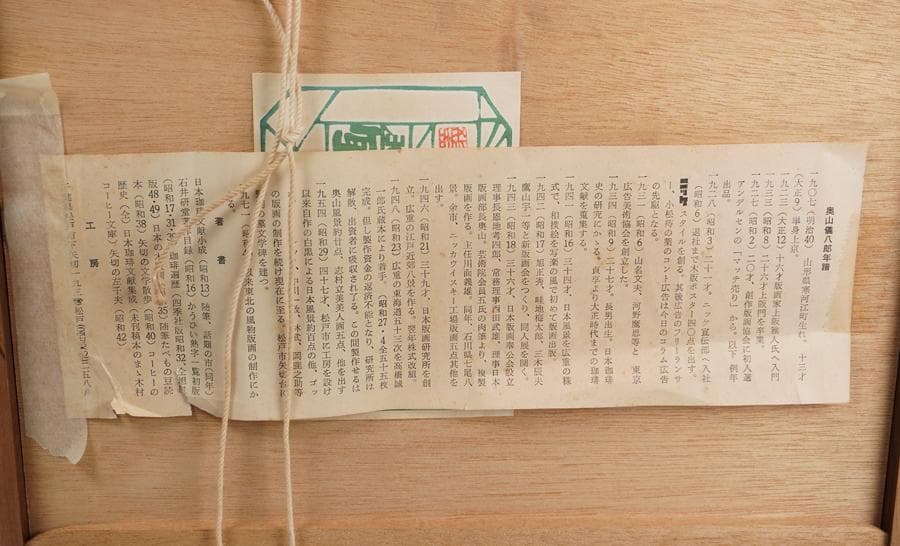 奥山儀八郎年譜
一九〇七(明治40) 山形県寒河江町生れ。十三才
(大正9)単身上京。
一九二三(大正12)十六才版画家上阪雅人氏へ入門
一九三三(昭和8)二十六才上阪門を卒業。
一九二七(昭和2)二〇才、創作版画協会に初入選
アンデルセンの「マッチ売り」から。以下 例年
出品。
一九二八(昭和3)二十一才、ニッケ宣伝部へ入社
(昭和6)退社まで木版ポスター四〇点を出す。
ニッケスタイルを創る。其後広告のフリーランサ
ー、小松苟の薬のコント広告は今日のコラム広告
の先駆となる。
一九三一(昭和6)山名文夫、河野鷹思等と 東京
広告美術協会を創立した。
一九三四(昭和9)二十七才。長男出生。日本珈琲
史の研究にかゝる。貞享より大正時代までの珈琲
文献を蒐集する。
一九四一(昭和16)三十四才、日本風景を広重の様
式で、相撲絵を写楽の風で初めて版画出版。
一九四二(昭和17)旭正秀、畦地梅太郎、三木辰夫
鷹山宇一等と新版画会をつくり、同人展を開く。
一九四三(昭和18)三十六才、日本版画奉公会設立
理事長恩地孝四郎、常務理事西田武雄、理事日本
版画部長奥山。芸術院会員五氏の肉筆より、複製
版画を作る。主任川面義雄。同年、石川県七尾八
景。余市、ニッカウイスキー工場版画五点其他を
出す。
一九四六(昭和21)三十九才、日本版画研究所を創
立。広重の江戸近郊八景を作る。翌年株式改組。
一九四八(昭和23)広重の東海道五十三次を高橋誠
一郎氏蔵本により着手。(昭和27・4全五十五枚
完成。但し製作資金の返済不能となり、研究所は
解散、出資者に吸収され了る。この間製作せるは
奥山風景約廿点、志村立美美人画五点、他を出す
一九五四(昭和29)四十七才、松戸市に工房を設け
以来自作の白黒による日本風景約百点の他、ゴッ
中川一政、木武、岡鹿之助等
の版画の制作を続け現在に至る。松戸市矢切台に
の墓文学碑を建つ。
一九七一 以来東北の風物版画の制作にか
る。
著 書
日本珈琲文献小成(昭和13)随筆、話題の市(同年)
石井研堂著作目録(昭和16)かうひい熟字一覧初版
(昭和17・31・35)珈琲遍歴(四季社版昭和32、
版48・49)日本の木 35)随筆たべもの豆読
本(昭和38)矢切の文学散歩(昭和40)コーヒーの
歴史(仝)日本珈琲文献集成(未刊稿本のまゝ木村
コーヒー文庫)矢切の左千夫(昭和42)
工 房